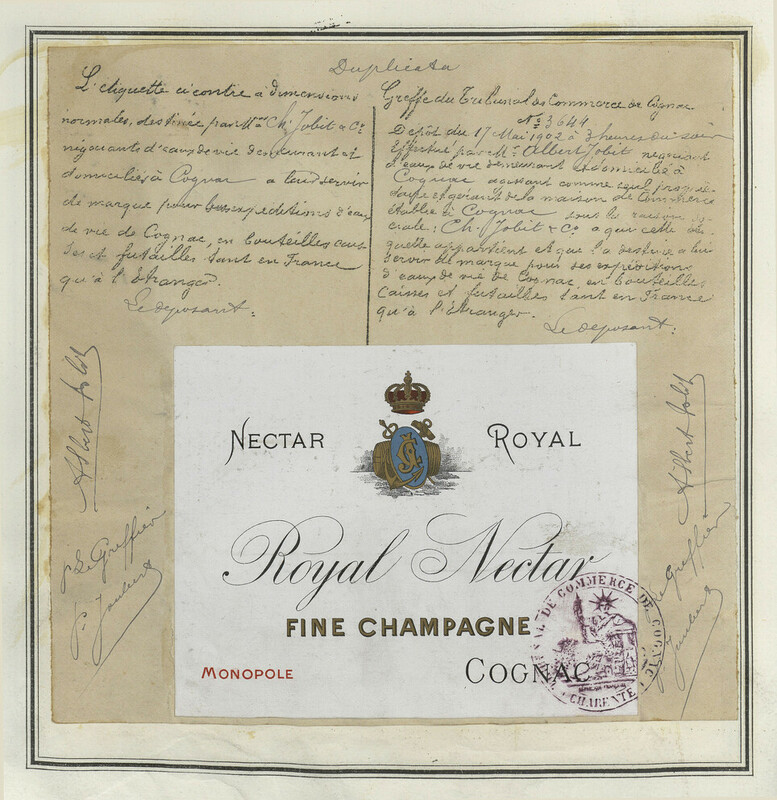 Duplicata
L'étiquette ci contre a dimensions
normales, destinée par Mrs Ch. Jobit & Cie
négociants d'eaux de vie demeurant et
domiciliés à Cognac a leur servir
de marque pour leurs expéditions d'eaux
de vie de Cognac, en bouteilles cais
ses et futailles tant en France
qu'à l'Étranger.
Le déposant:
Greffe du Tribunal de Commerce de Cognac
No 3644
Dépôt du 17 Mai 1902 à 3 heures du soir
Effectué par Mr Albert Jobit négociant
d'eaux de vie demeurant et domicilié à
Cognac agissant comme seul proprié
taire et gérant de la maison de Commerce
établie à Cognac sous la raison so
ciale: Ch. Jobit & Co a qui cette éti
quette appartient et qui l'a destinée a lui
servir de marque pour ses expéditions
d'eaux de vie de Cognac, en bouteilles
caisses et futailles tant en France
qu'à l'Étranger.
Le déposant:
Albert Jobit
p. Le Greffier
P. Joubert
NECTAR ROYAL
Royal Nectar
FINE CHAMPAGNE
MONOPOLE
COGNAC
DE COMMERCE DE COGNAC
CHARENTE
Albert Jobit
Le Greffier
Joubert